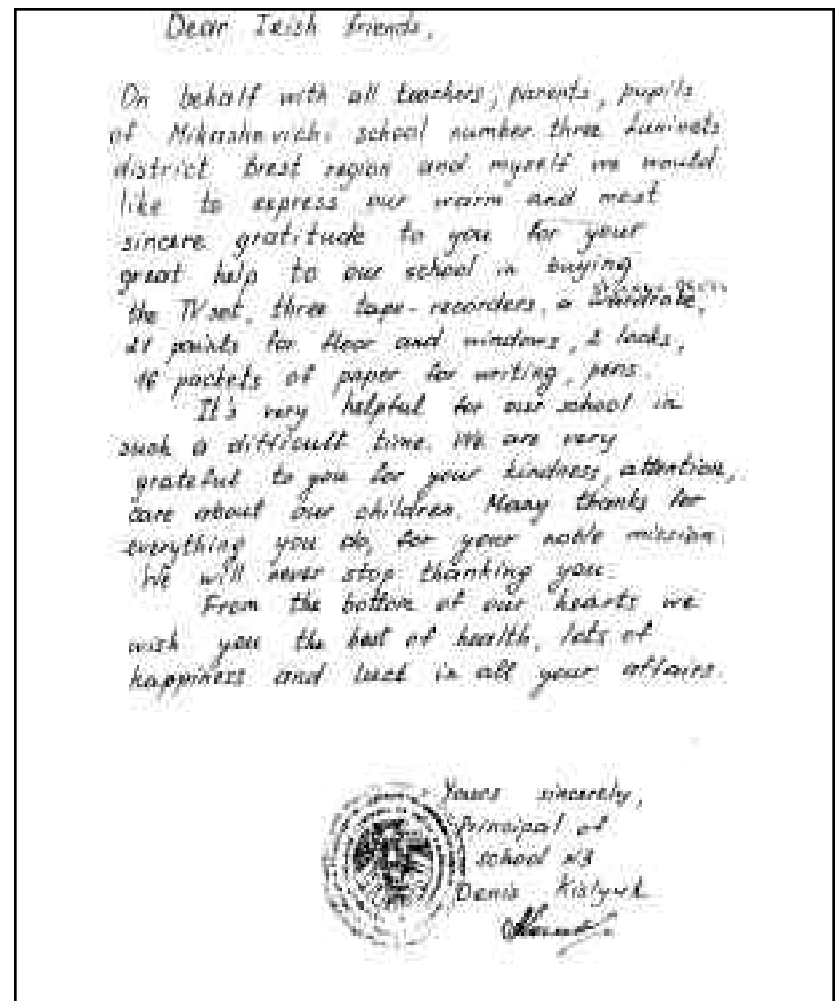 Dear Irish friends,
On behalf with all teachers, parents, pupils
of Mikashevichi school number three Luninets
district Brest region and myself we would
like to express our warm and most
sincere gratitude to you for your
great help to our school in buying
the TV set, three tape-recorders, a wardrobe,
21 paints for floor and windows, 2 locks,
16 packets of paper for writing, pens.
It's very helpful for our school in
such a difficult time. We are very
grateful to you for your kindness, attention,
care about our children. Many thanks for
everything you do, for your noble mission.
We will never stop thanking you.
From the bottom of our hearts we
wish you the best of health, lots of
happiness and luck in all your affairs.
Yours sincerely,
Principal of
school N3
Denis Kislyuk